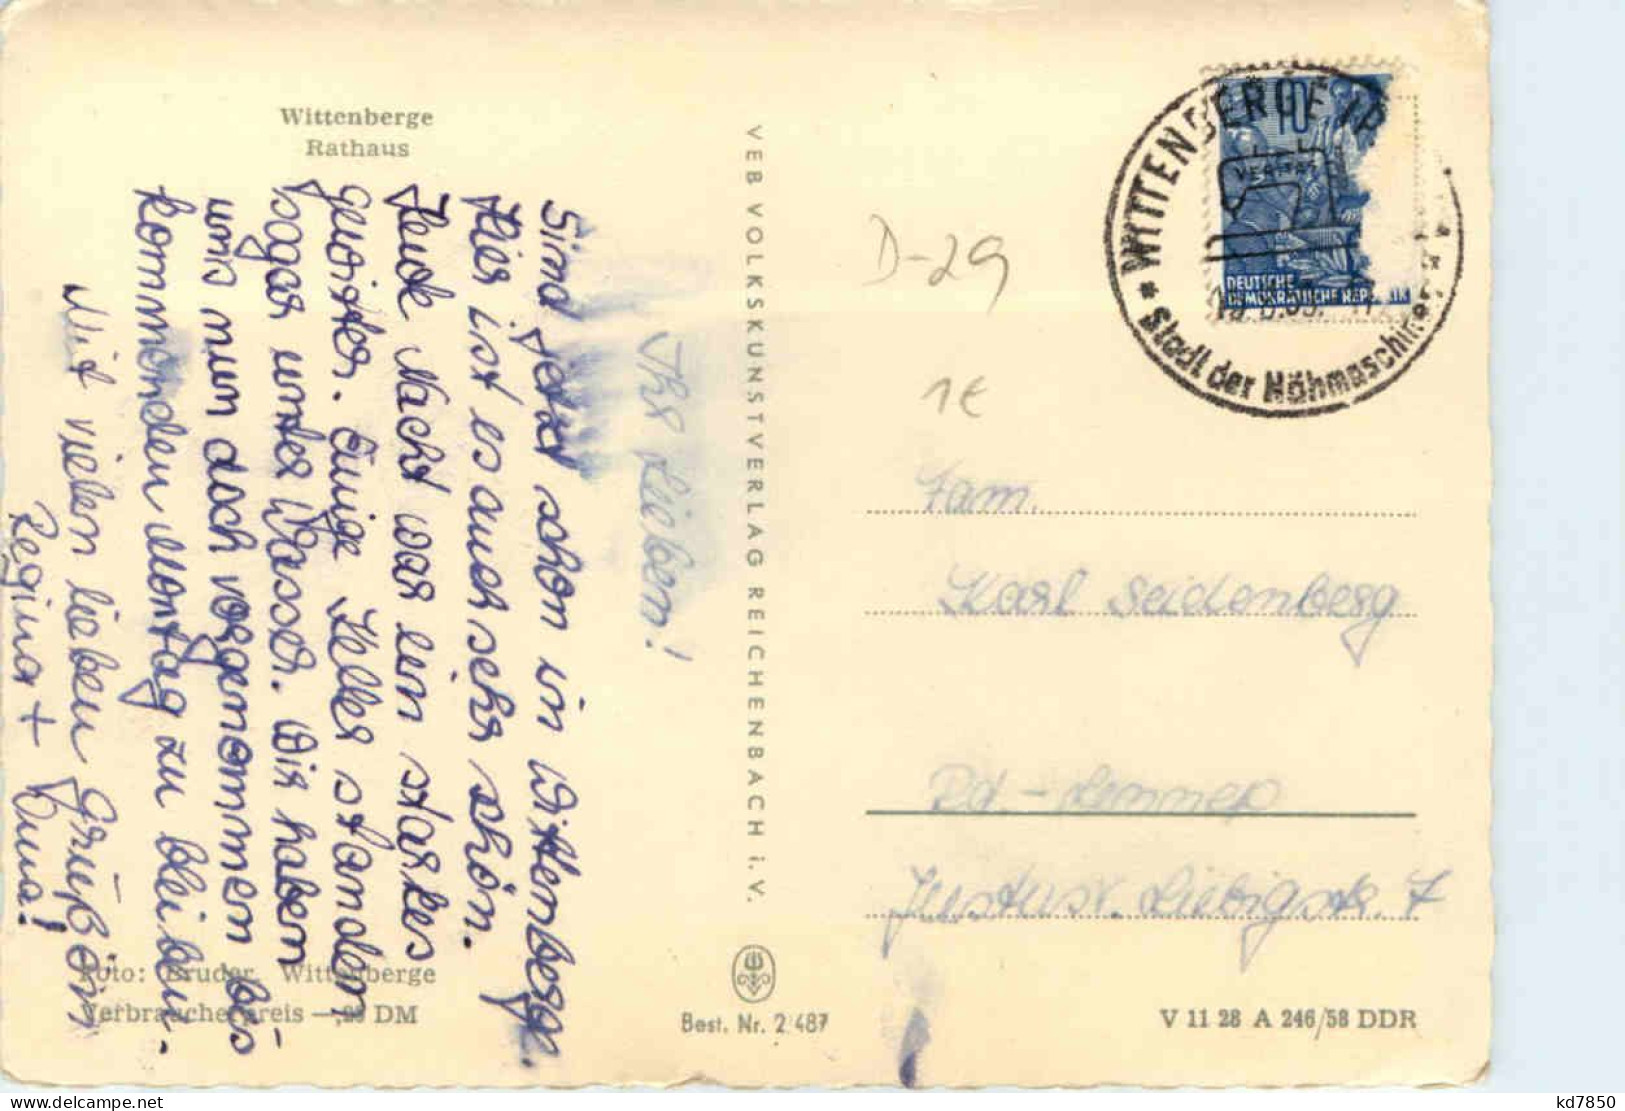 Wittenberge
Rathaus
Ihr Lieben!
Sind jetzt schon in Wittenberge.
Hier ist es auch sehr schön.
Heute Nacht war ein starkes
gewitter. Einige Keller standen
sogar unter Wasser. Wir haben
uns nun doch vorgenommen bis
kommenden Montag zu bleiben.
Mit vielen lieben Grüßen
Regina +
Foto: Bruder, Wittenberge
Verbraucherpreis —,25 DM
VEB VOLKSKUNSTVERLAG REICHENBACH i. V.
Best. Nr. 2/487
D-29
1€
10
DEUTSCHE
DEMOKRATISCHE REPUBLIK
* WITTENBERGE
VERITAS
* Stadt der Nähmaschinen *
Fam.
Karl Seidenberg
Rd.-Lennep
Justus v. Liebigstr. 7
V 11 28 A 246/58 DDR
kd7850